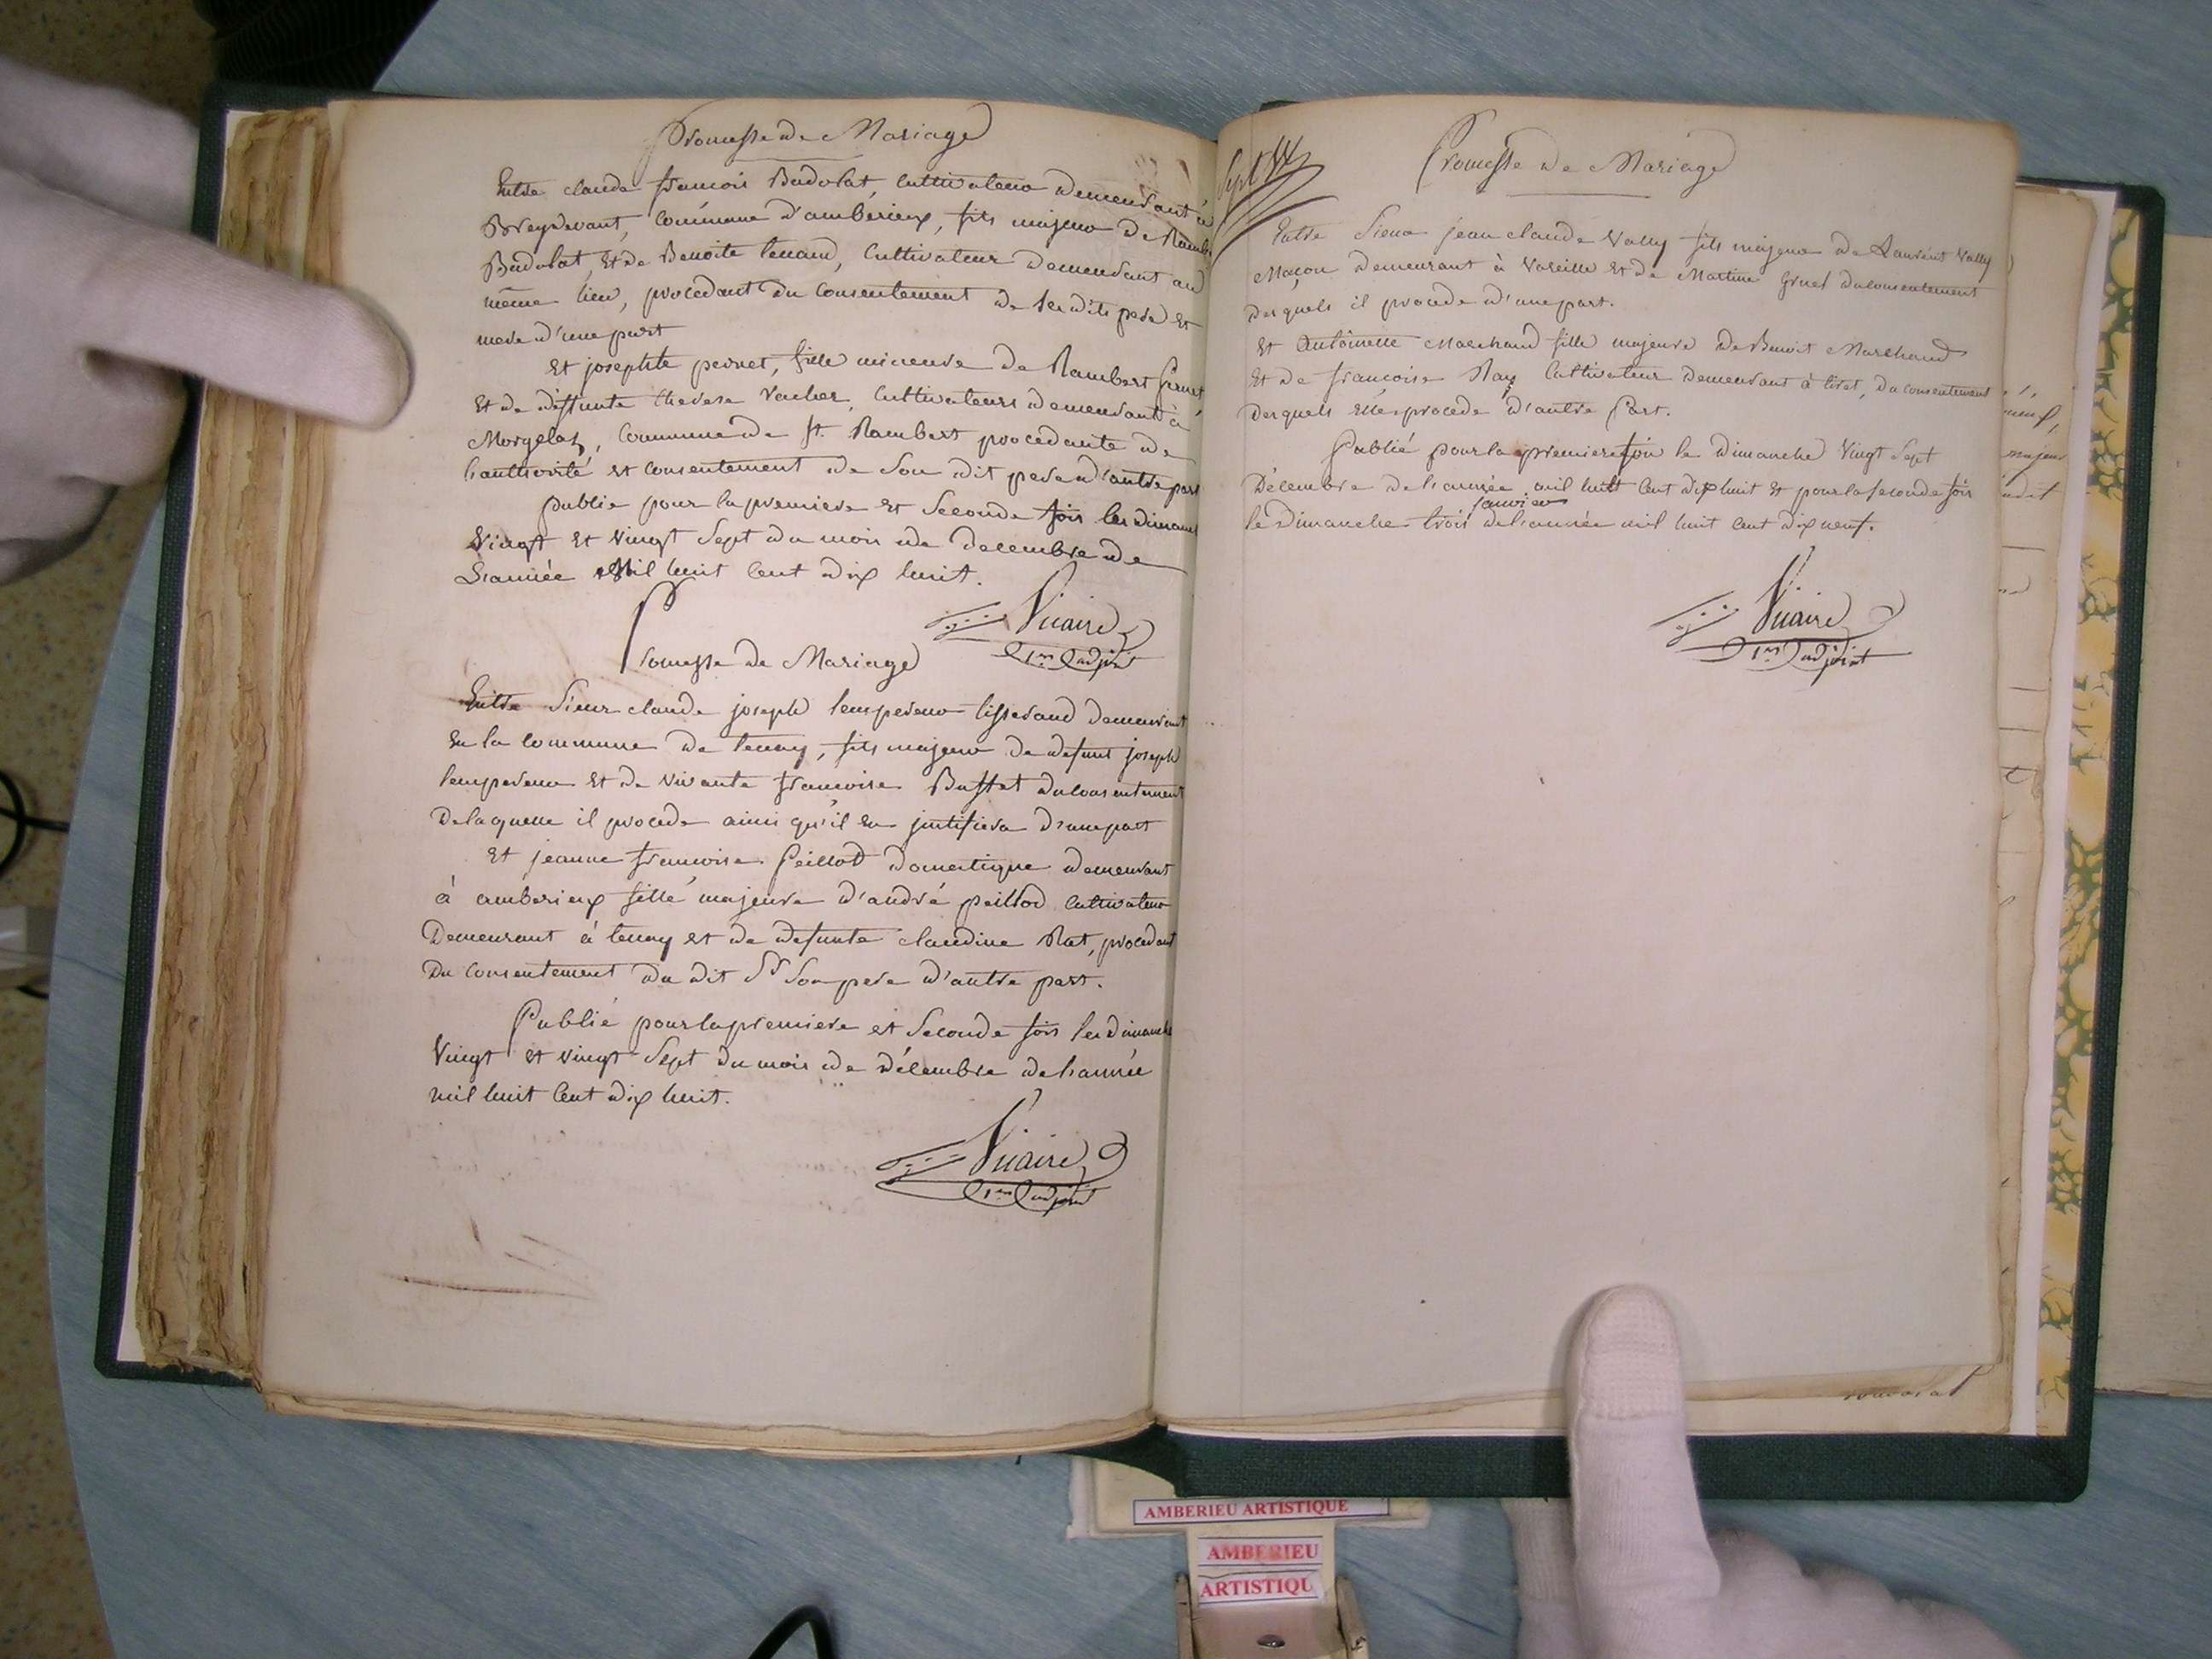 Promesse de Mariage
Entre claude francois Budolat, Cultivateur demeurant à
Breydevant, Commune d'ambérieux, fils majeur de Rambt
Budolat, et de Benoite tenand, Cultivateur demeurant au
même lieu, procedant du Consentement de ses dits pere et
mere d'une part
Et josephte pernet, fille mineure de Rambert pernet
Et de deffunte therese Vacher, Cultivateurs demeurant à
Morgelaz, Commune de st. Rambert procedante de
l'authorité et Consentement de Son dit pere d'autre part
publié pour la premiere et Seconde fois les dimanches
Vingt et Vingt Sept du mois de decembre de
L'année Mil huit Cent dix huit.
Vicaire
1er adjoint
Promesse de Mariage
Entre Sieur claude joseph lempereur tisserand demeurant
En la Commune de tenay, fils majeur de defunt joseph
lempereur et de vivante francoise Buffet du Consentement
De laquelle il procede ainsi qu'il en justifiera d'une part
Et jeanne francoise peillod domestique demeurant
à ambérieux fille majeure d'andré peillod Cultivateur
Demeurant à tenay et de defunte claudine Rat, procedant
Du Consentement du dit Sr Son pere d'autre part.
Publié pour la premiere et Seconde fois les dimanche
Vingt et vingt Sept du mois de décembre de l'année
mil huit Cent dix huit.
Vicaire
1er adjoint
Sept
Promesse de Mariage
Entre Sieur jean claude Vally fils majeur de Laurent Vally
Maçon demeurant à Vareille et de Martine Gruel du Consentement
Desquels il procede d'une part.
Et Antoinette Marchand fille majeure de Benoit Marchand
Et de francoise Ray Cultivateur demeurant à tiret, du Consentement
Desquels elle procede d'autre part.
Publié pour la premiere fois le dimanche Vingt Sept
Décembre de l'année mil huit Cent dix huit et pour la seconde fois
janvier
le Dimanche trois de l'année mil huit Cent dix neuf.
Vicaire
1er adjoint
majeur
AMBERIEU ARTISTIQUE
AMBERIEU
ARTISTIQU